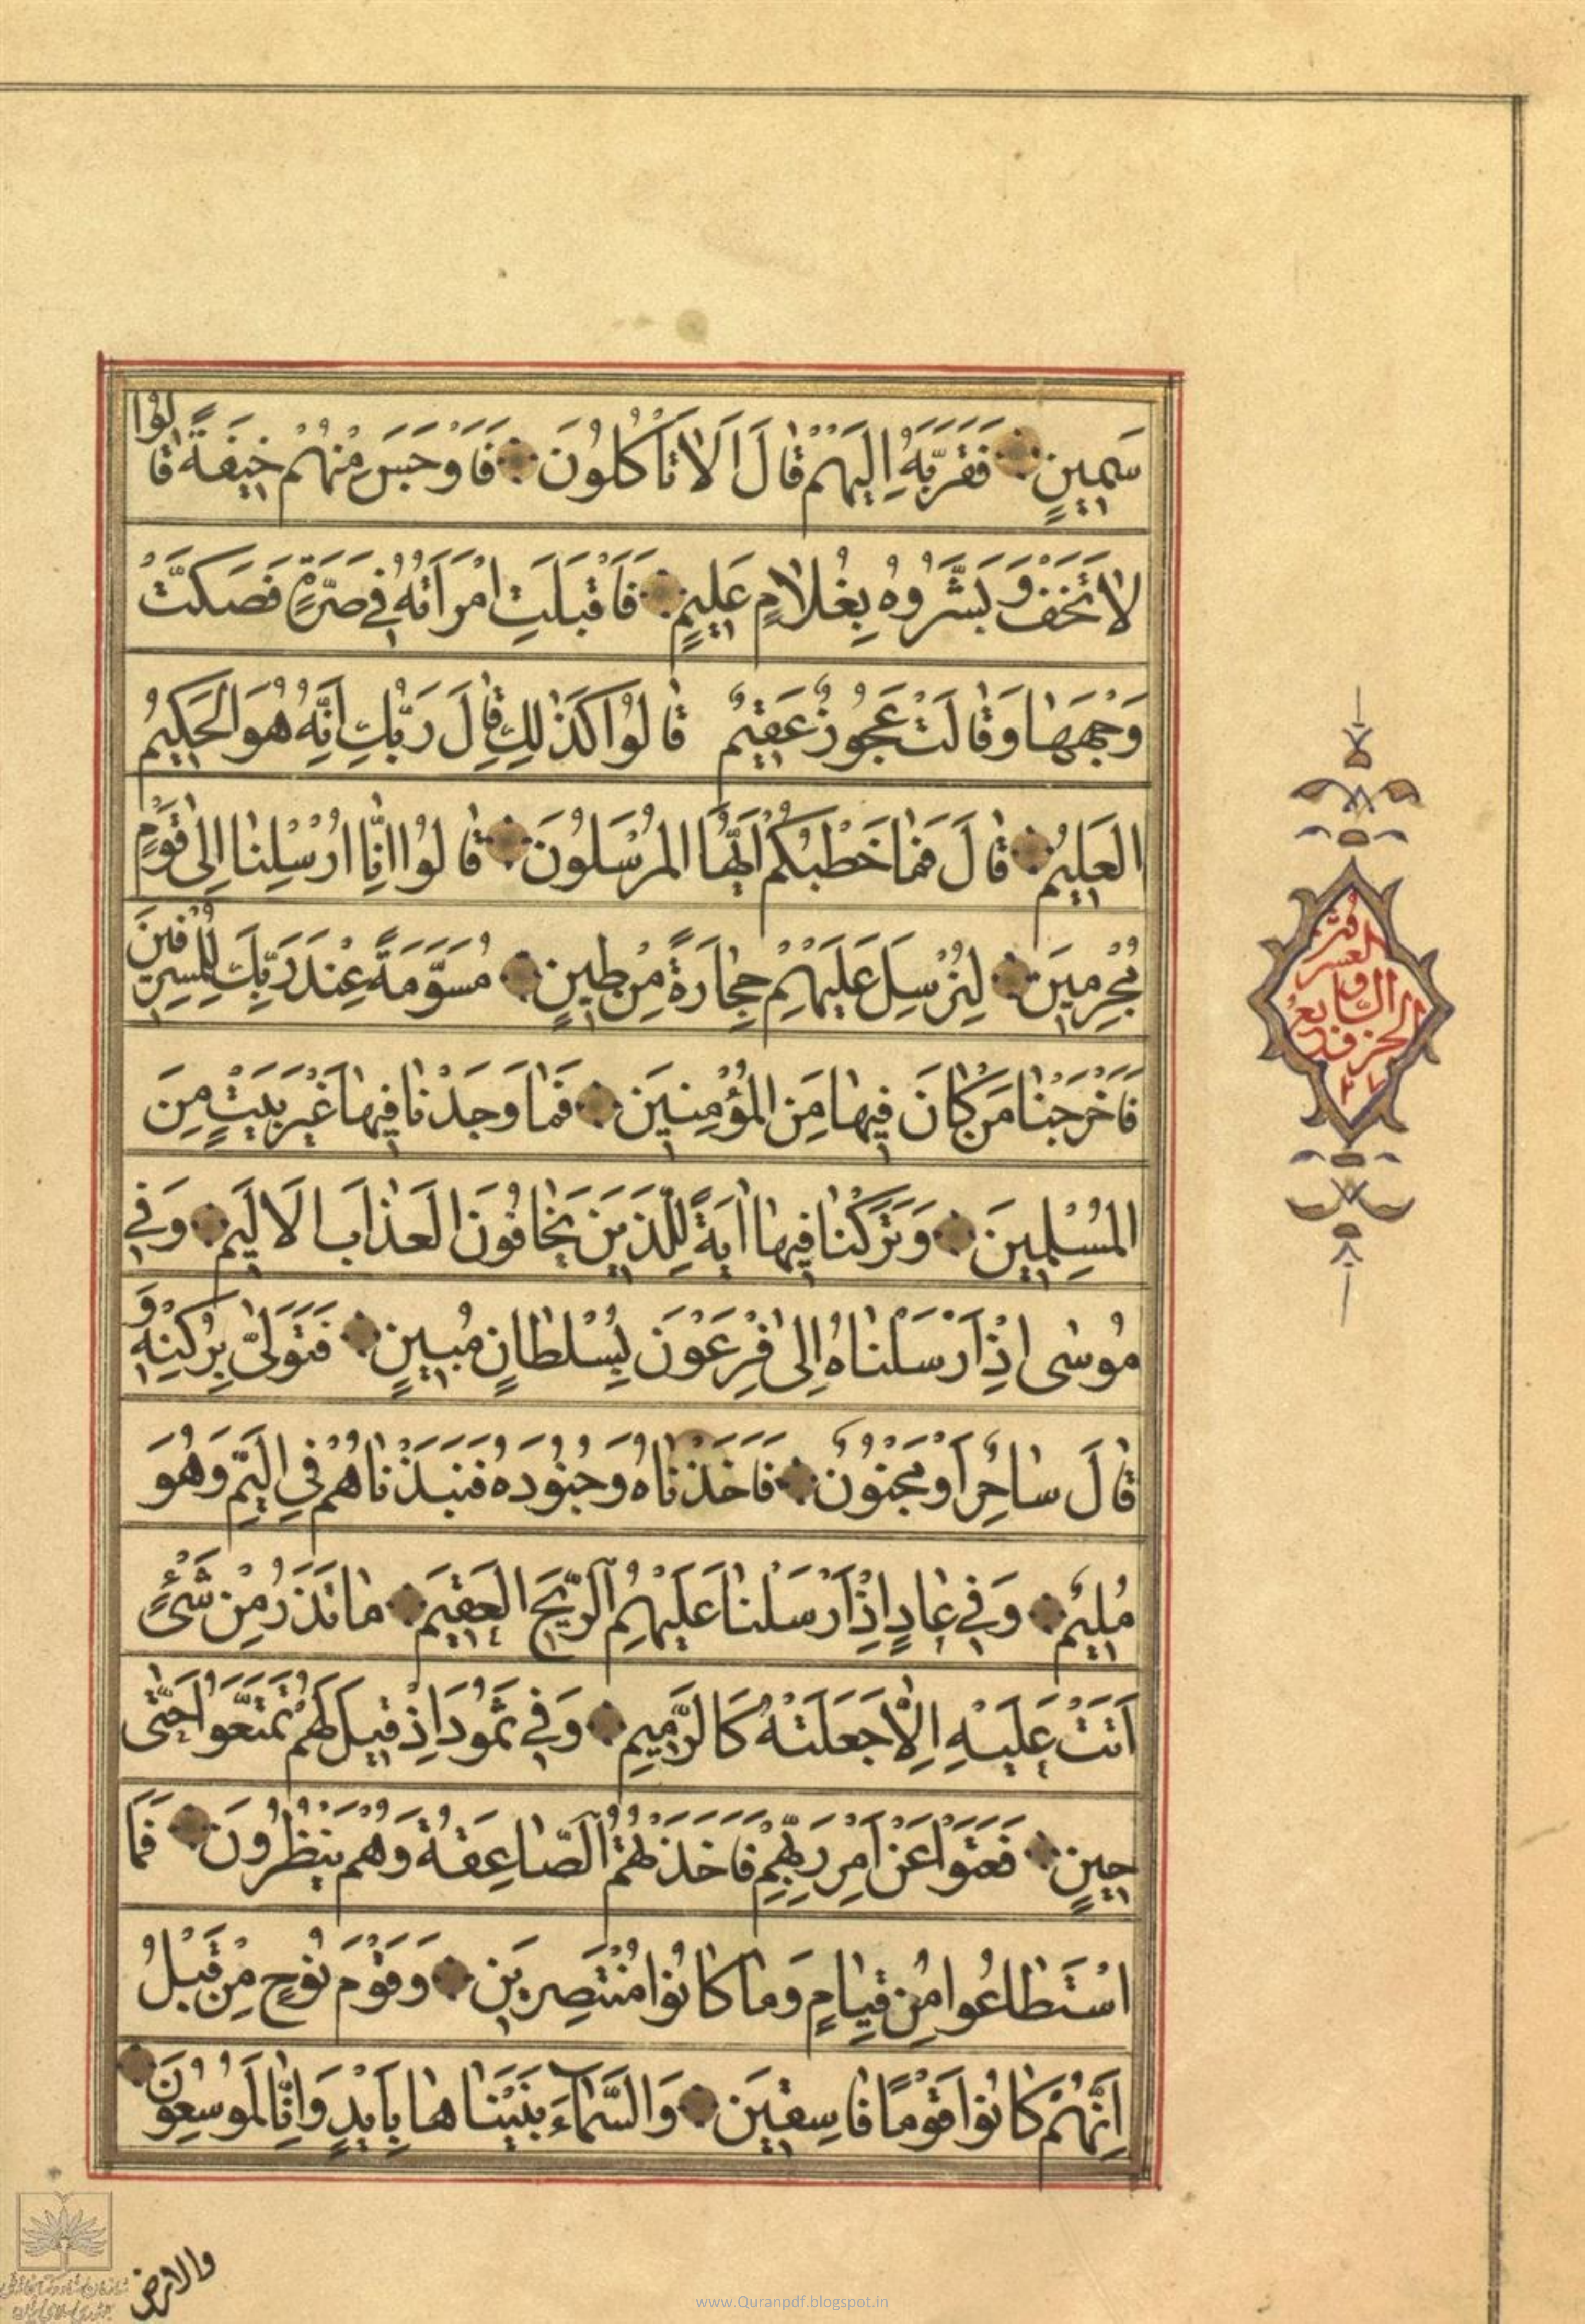 سَمِينٍ فَقَرَّبَهُ اِلَيْهِمْ قٰالَ اَلٰا تَأْكُلُونَ فَاَوْجَسَ مِنْهُمْ خِيفَةً قٰالُوا
لٰا تَخَفْ وَبَشَّرُوهُ بِغُلٰامٍ عَلِيمٍ فَاَقْبَلَتِ امْرَاَتُهُ فِي صَرَّةٍ فَصَكَّتْ
وَجْهَهٰا وَقٰالَتْ عَجُوزٌ عَقِيمٌ قٰالُوا كَذٰلِكِ قٰالَ رَبُّكِ اِنَّهُ هُوَ الْحَكِيمُ
الْعَلِيمُ قٰالَ فَمٰا خَطْبُكُمْ اَيُّهَا الْمُرْسَلُونَ قٰالُوا اِنّٰا اُرْسِلْنٰا اِلىٰ قَوْمٍ
مُجْرِمِينَ لِنُرْسِلَ عَلَيْهِمْ حِجٰارَةً مِنْ طِينٍ مُسَوَّمَةً عِنْدَ رَبِّكَ لِلْمُسْرِفِينَ
فَاَخْرَجْنٰا مَنْ كٰانَ فِيهٰا مِنَ الْمُؤْمِنِينَ فَمٰا وَجَدْنٰا فِيهٰا غَيْرَ بَيْتٍ مِنَ
الْمُسْلِمِينَ وَتَرَكْنٰا فِيهٰا اٰيَةً لِلَّذِينَ يَخٰافُونَ الْعَذٰابَ الْاَلِيمَ وَفِي
مُوسٰى اِذْ اَرْسَلْنٰاهُ اِلىٰ فِرْعَوْنَ بِسُلْطٰانٍ مُبِينٍ فَتَوَلّٰى بِرُكْنِهِ وَ
قٰالَ سٰاحِرٌ اَوْ مَجْنُونٌ فَاَخَذْنٰاهُ وَجُنُودَهُ فَنَبَذْنٰاهُمْ فِي الْيَمِّ وَهُوَ
مُلِيمٌ وَفِي عٰادٍ اِذْ اَرْسَلْنٰا عَلَيْهِمُ الرِّيحَ الْعَقِيمَ مٰا تَذَرُ مِنْ شَيْءٍ
اَتَتْ عَلَيْهِ اِلّٰا جَعَلَتْهُ كَالرَّمِيمِ وَفِي ثَمُودَ اِذْ قِيلَ لَهُمْ تَمَتَّعُوا حَتّٰى
حِينٍ فَعَتَوْا عَنْ اَمْرِ رَبِّهِمْ فَاَخَذَتْهُمُ الصّٰاعِقَةُ وَهُمْ يَنْظُرُونَ فَمَا
اسْتَطٰاعُوا مِنْ قِيٰامٍ وَمٰا كٰانُوا مُنْتَصِرِينَ وَقَوْمَ نُوحٍ مِنْ قَبْلُ
اِنَّهُمْ كٰانُوا قَوْمًا فٰاسِقِينَ وَالسَّمٰاءَ بَنَيْنٰاهٰا بِاَيْدٍ وَاِنّٰا لَمُوسِعُونَ
والارض
الحزب
السابع و
العشر
٢٧
www.Quranpdf.blogspot.in